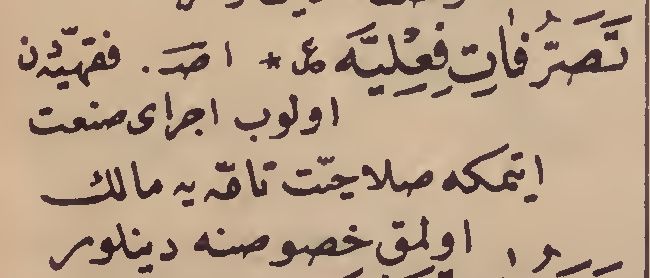 تَصَرُّفَاتِ فِعْلِيَّه ع * اصـ . فقهيّه‌دن
اولوب اجراى صنعت
ايتمكه صلاحيّت تامّه يه مالك
اولمق خصوصنه دينلور